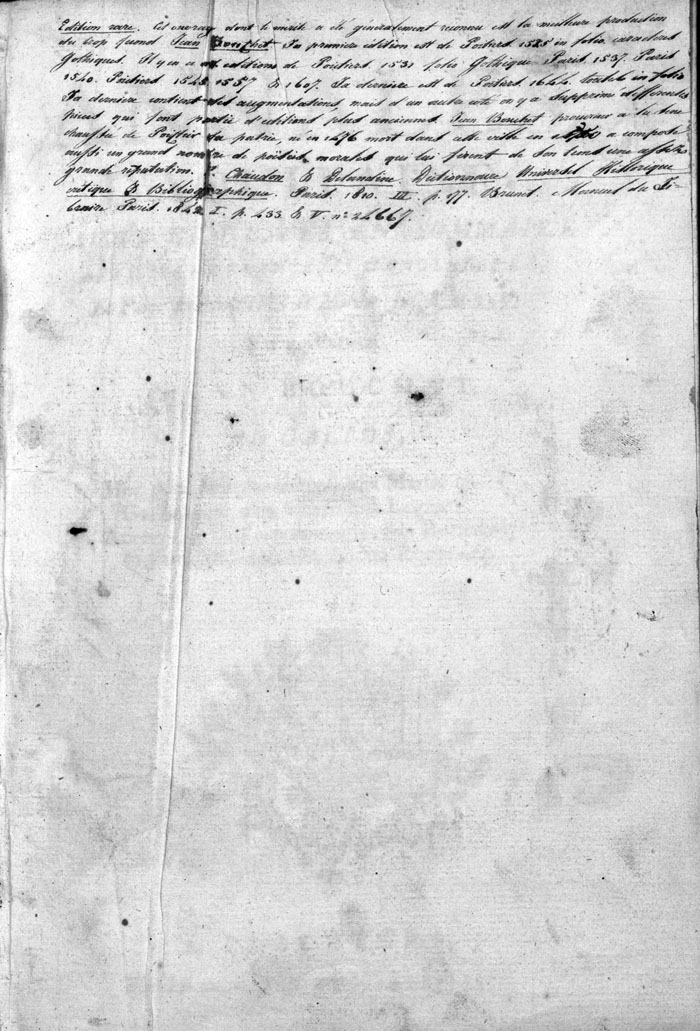 Edition rare. Cet ouvrage dont le mérite a été généralement reconnu est la meilleure production
du trop fécond Jean Bouchet. Sa première édition est de Poitiers 1525 in folio caractères
Gothiques. Il y en a des éditions de Poitiers 1531 folio Gothique Paris 1537. Paris
1540. Poitiers 1545 1557 & 1607. Sa dernière est de Poitiers 1644 in folio
Sa dernière contient des augmentations, mais d'un autre coté on y a supprimé différentes
pièces qui font partie d'éditions plus anciennes. Jean Bouchet procureur à la séné
chaussée de Poitiers sa patrie, né en 1476 mort dans cette ville en a composé
aussi un grand nombre de poésies morales qui lui firent de son tems une assez
grande réputation. Chaudon & Delandine Dictionnaire Universel Historique
critique & Bibliographique. Paris. 1810. III. p. 97. Brunet. Manuel du Li-
braire Paris. 1842 I. p. 433 & V. nº 24667.